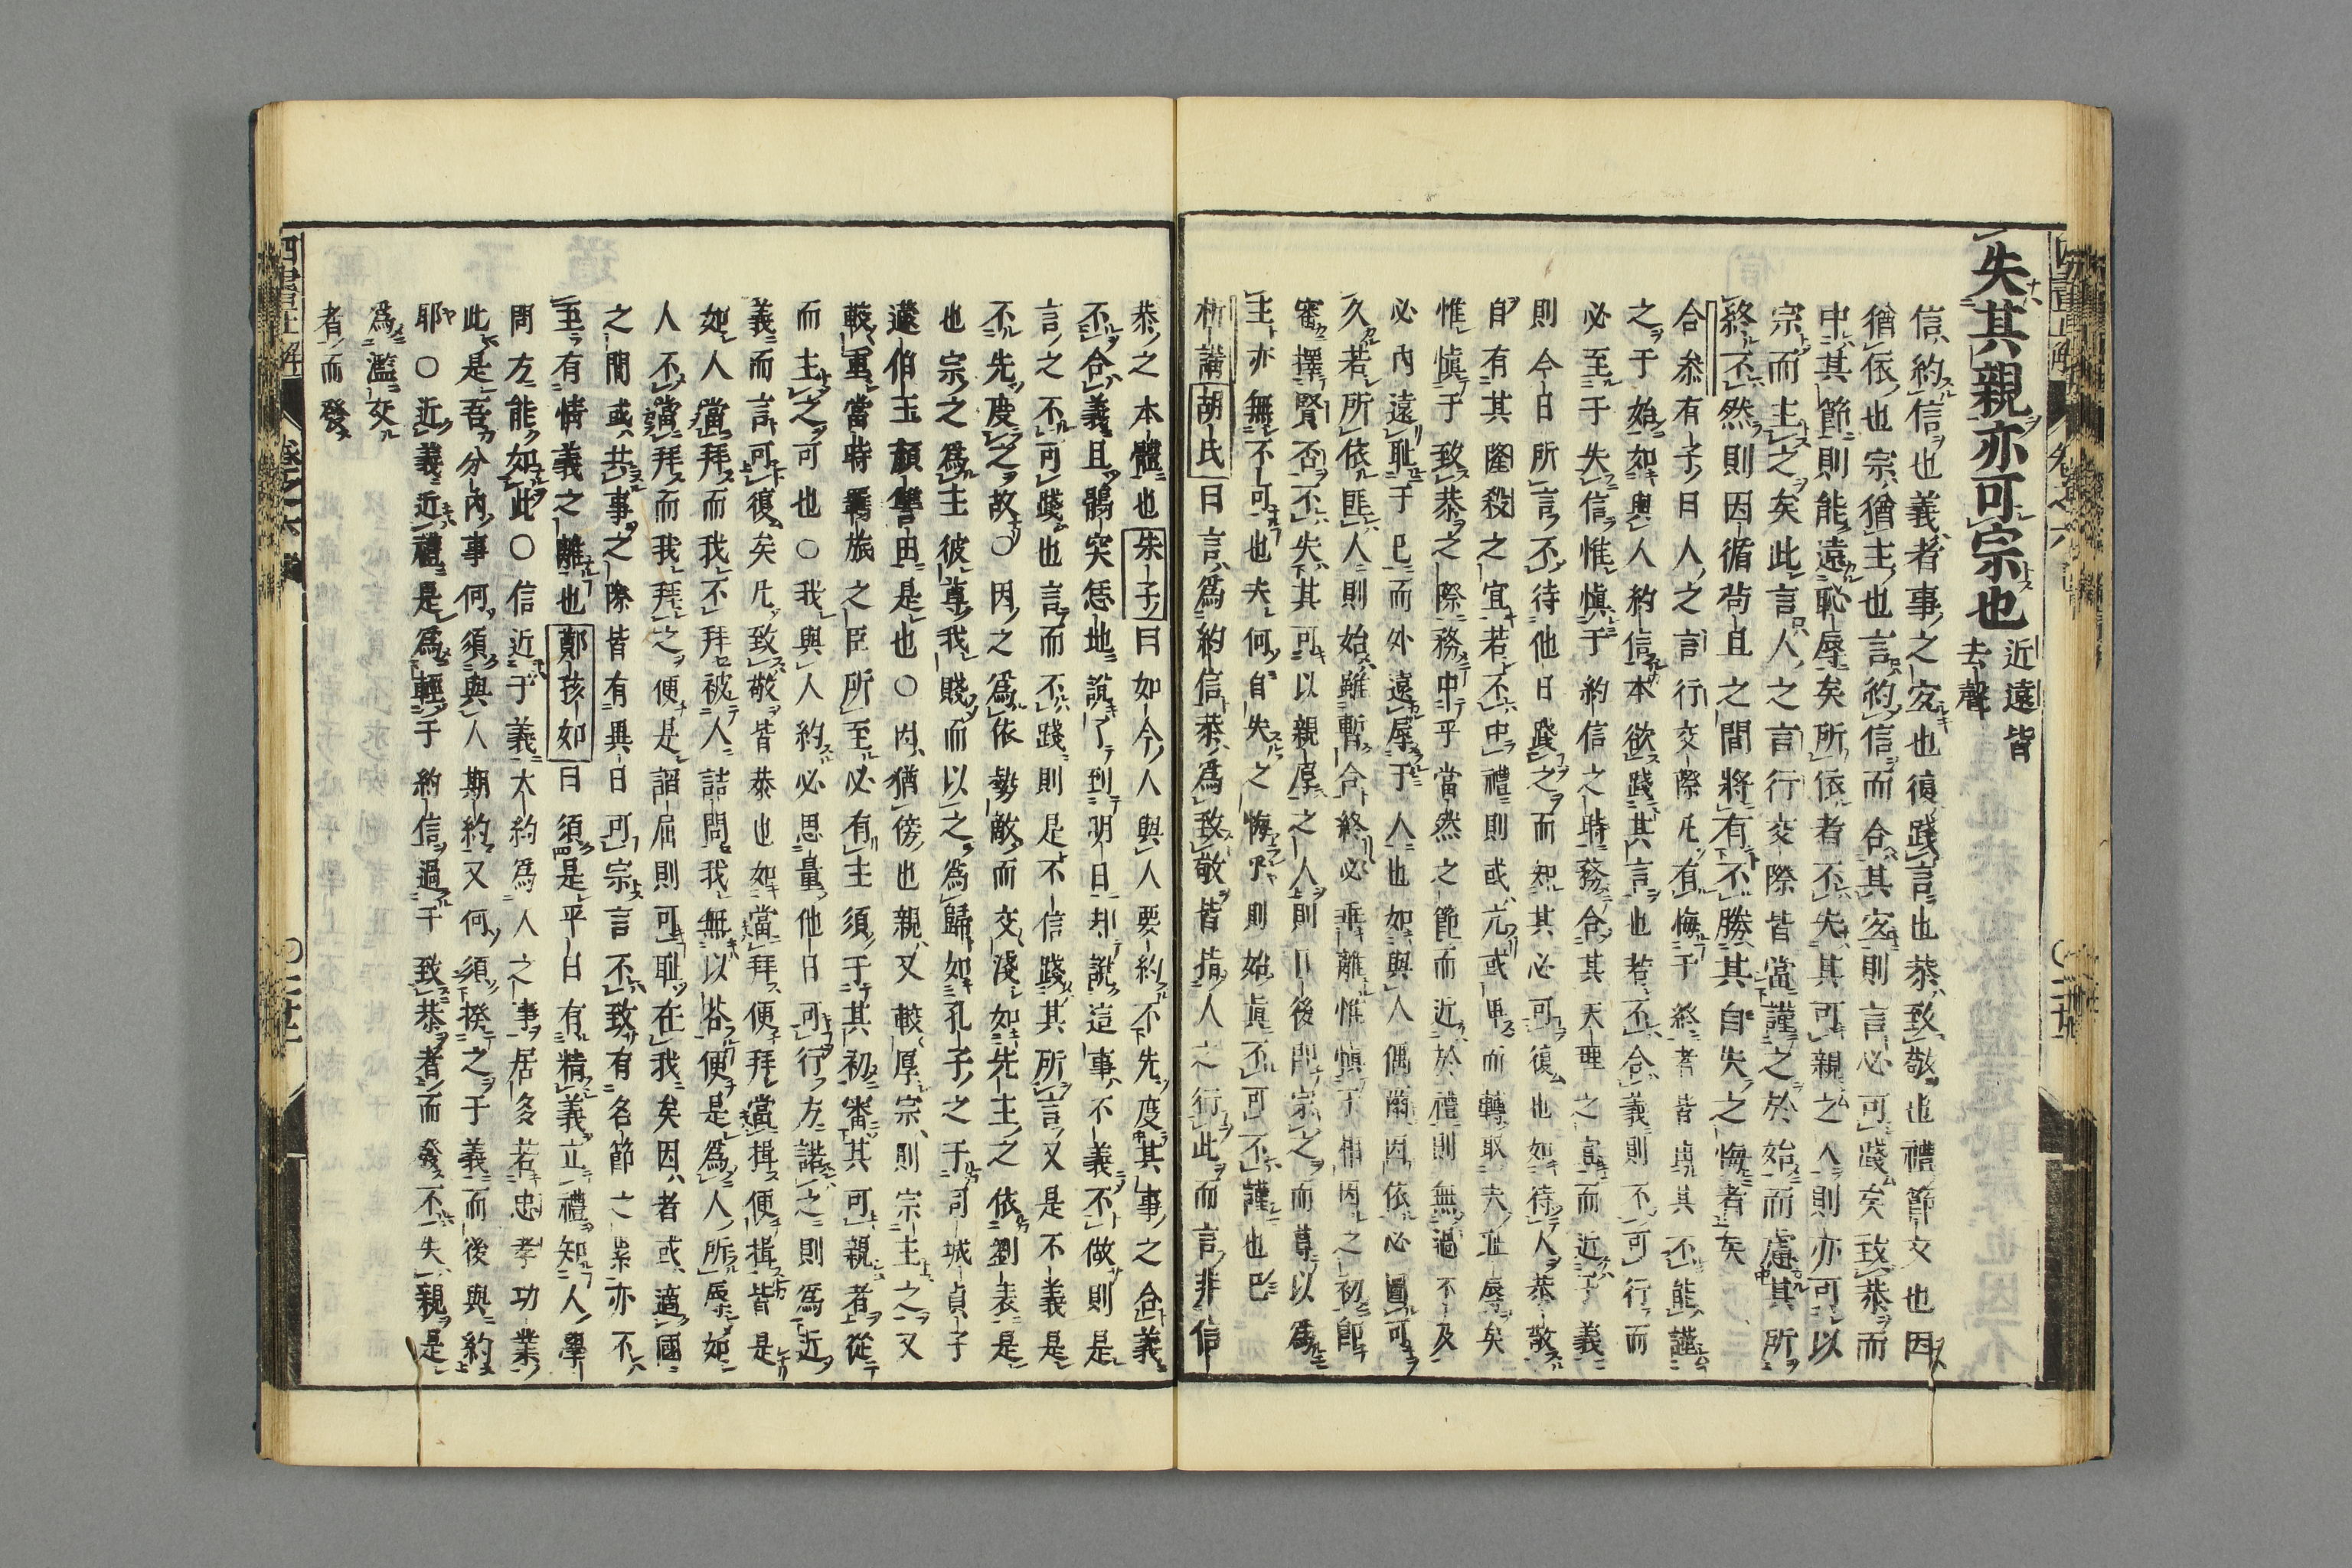 失其親亦可宗也
近遠皆
去聲
信約信也義者事之宐也復踐言也恭致敬也禮節文也因
猶依也宗猶主也言約信而合其宐則言必可踐矣致恭而
中其節則能遠恥辱矣所依者不失其可親之人則亦可以
宗而主之矣此言人之言行交際皆當謹之於始而慮其所
終不然則因循苟且之間將有不勝其自失之悔者矣
合參有子曰人之言行交際凡有悔于終者皆其不能謹
之于始如與人約信本欲踐其言也若不合義則不可行而
必至于失信惟愼于約信之時務合其天理之宐而近于義
則今日所言不待他日踐之而知其必可復也如待人恭敬
自有其隆殺之宜若不中禮則或亢或卑而轉取夫恥辱矣
惟愼于致恭之際務中乎當然之節而近於禮則無過不及
必內遠恥于己而外遠辱于人也如與人偶爾因依必圖可
久若所依匪人則始雖暫合終必乖離惟愼于相因之初卽
審擇賢否不失其可以親厚之人則日後卽宗之而尊以爲
主亦無不可也夫何自失之悔乎則始眞不可不謹也已
析講胡氏曰言爲約信恭爲致敬皆指人之行此而言非信
恭之本體也朱子曰如今人與人要約不先度其事之合義
不合義且鶻突恁地說了到明日却說這事不義不做則是
言之不可踐也言而不踐則是不信踐其所言又是不義是
不先度之故○因之爲依勢敵而交淺如先主之依劉表是
也宗之爲主彼尊我賤而以之爲歸如孔子之于司城貞子
蘧伯玉顔讐由是也○因猶傍也親又較厚宗則宗主之又
較重當時羈旅之臣所至必有主須于其初審其可親者從
而主之可也○我與人約必思量他日可行方諾之則爲近
義而言可復矣凡致敬皆恭也如當拜便拜當揖便揖皆是
如人當拜而我不拜被人詰問我無以荅便是爲人所辱如
人不當拜而我拜之便是諂屈則可恥在我矣因者或適國
之間或共事之際皆有異日可宗言不致有名節之累亦不
至有情義之離也鄭孩如曰須是平日有精義立禮知人學
問方能如此○信近于義大約爲人之事居多若忠孝功業
此是吾分內事何須與人期約又何須揆之于義而後與約
耶○近義近禮是爲輕于約信過于致恭者而發不失親是
爲濫交
者而發
四書正解
卷之六